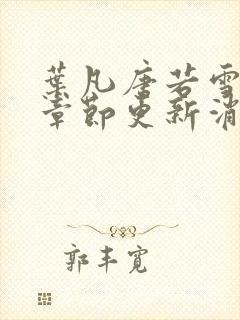 葉凡唐若雪
章節更新消
郭丰寬